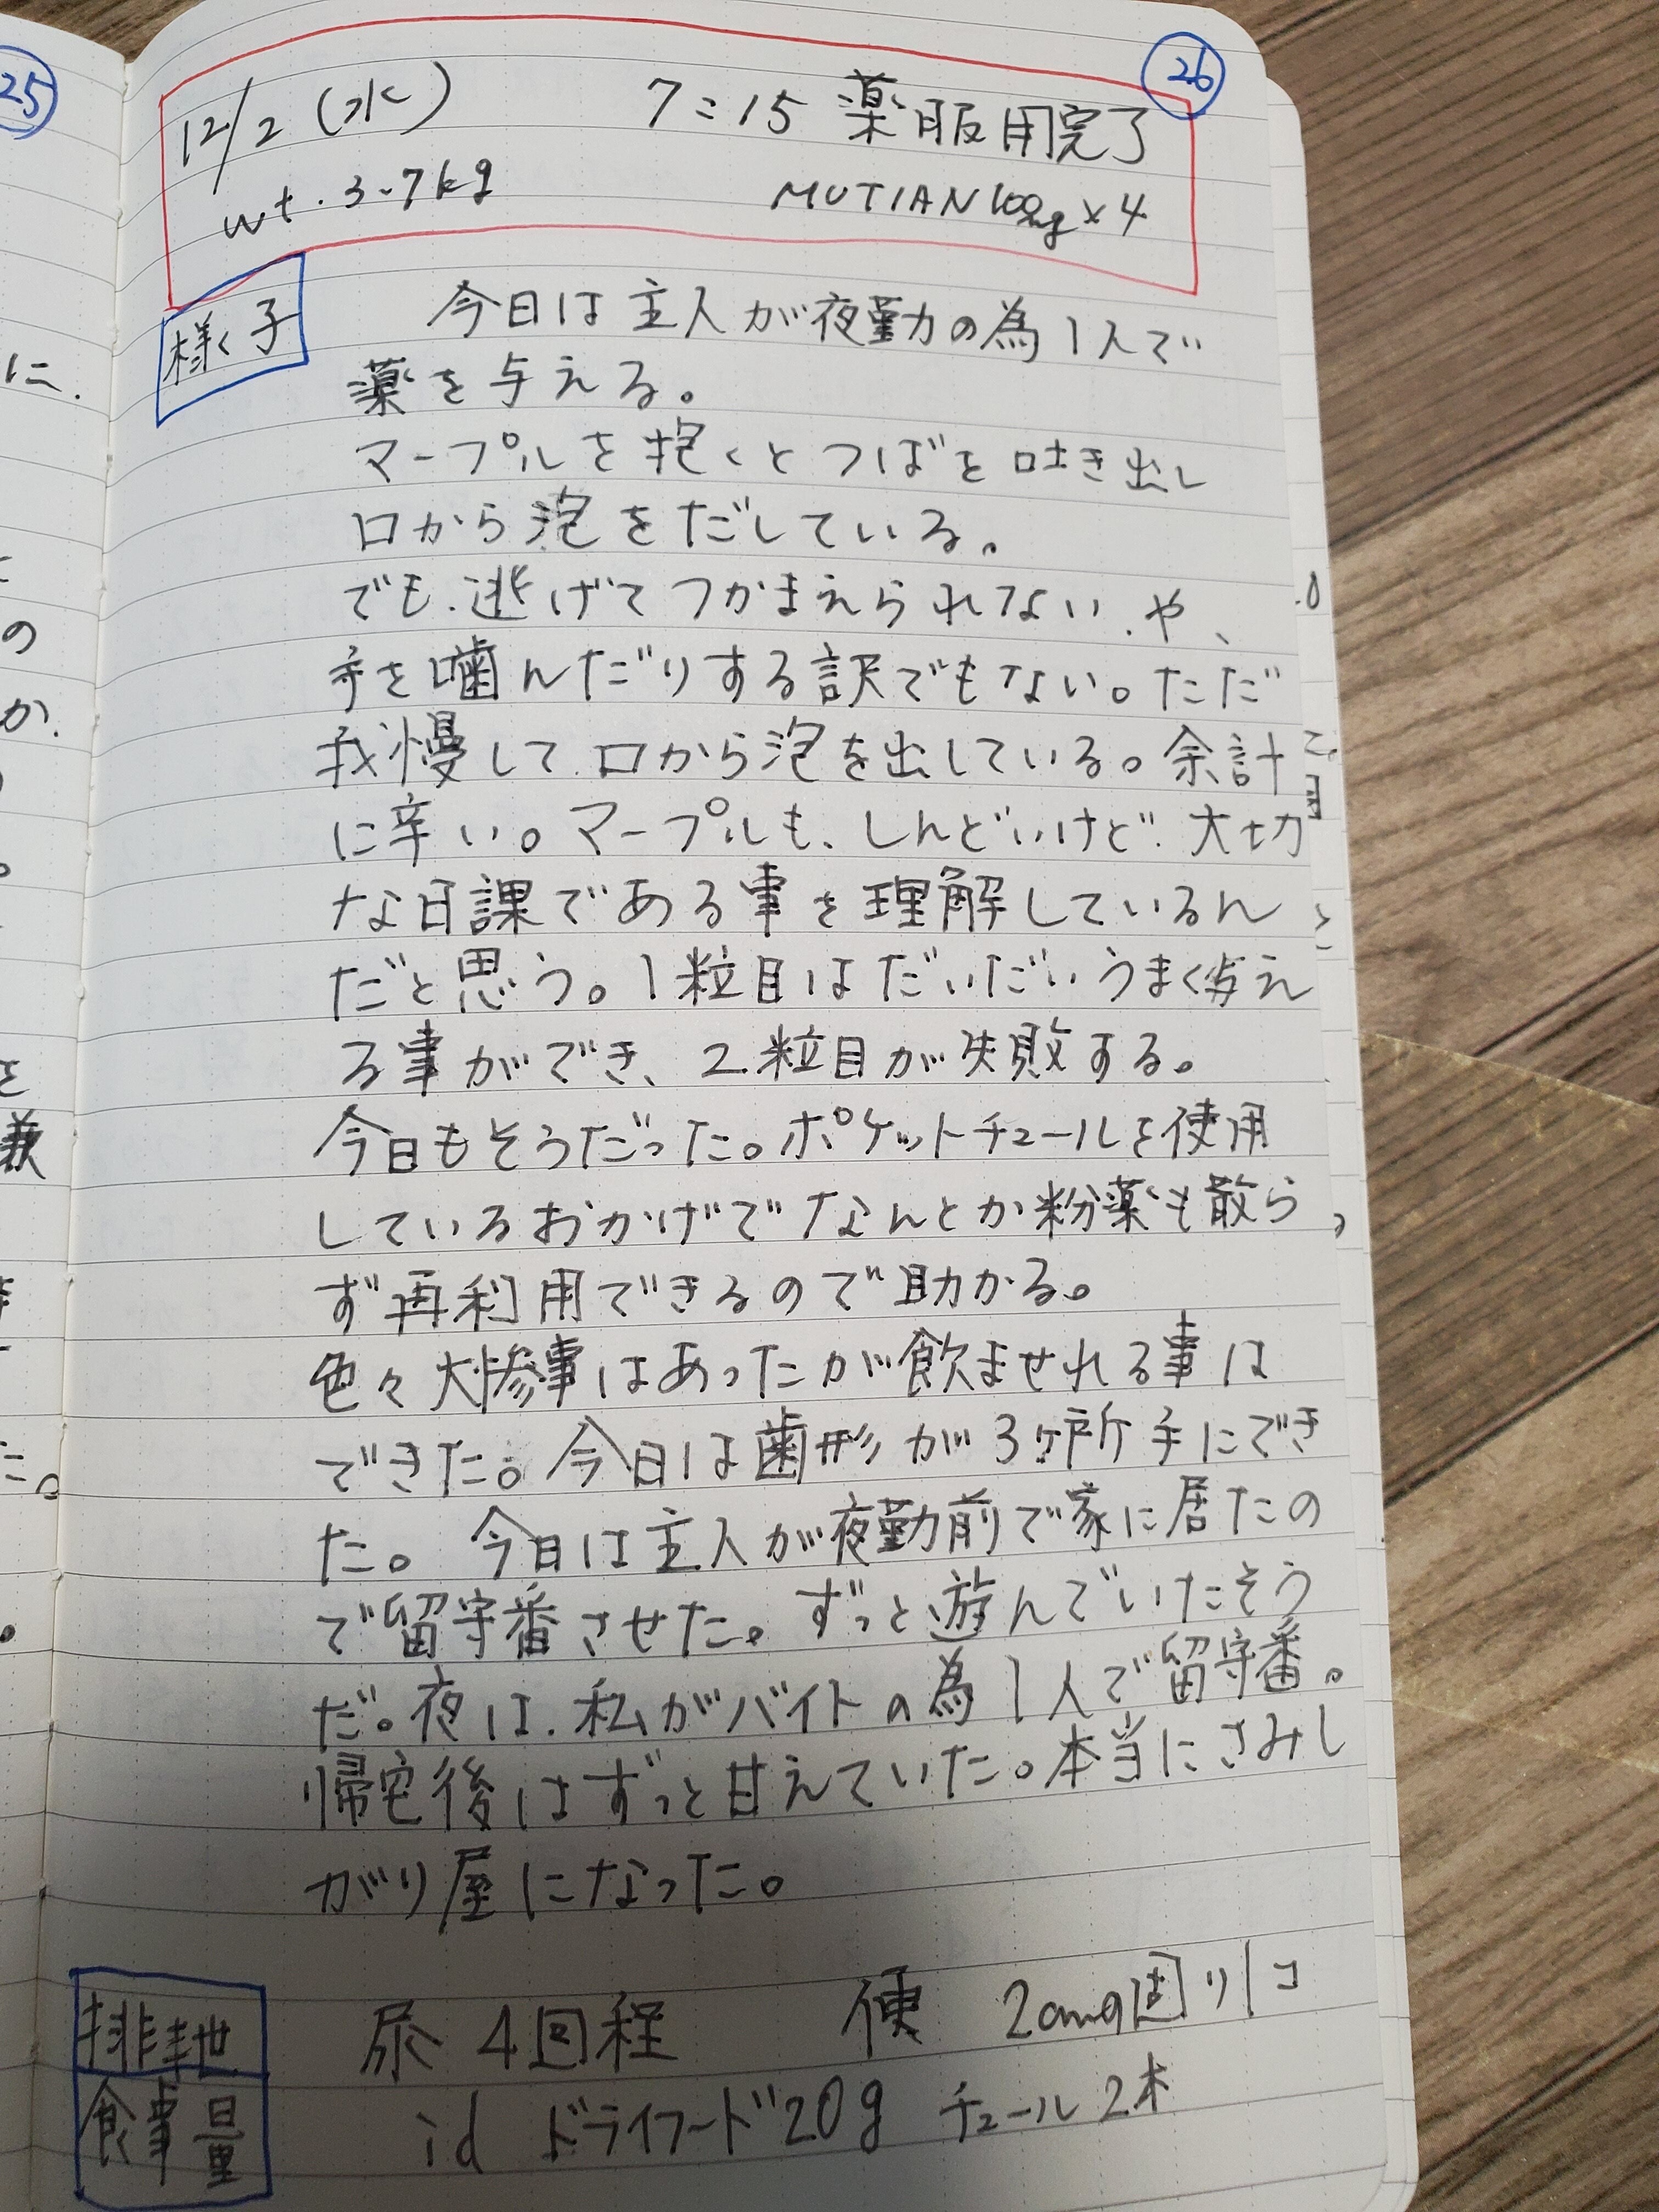 26
12/2 (水) 7:15 薬服用完了
wt. 3.7kg MUTIAN 100mg×4
様子
今日は主人が夜勤の為1人で
薬を与える。
マープルを抱くとつばを吐き出し
口から泡をだしている。
でも、逃げてつかまえられない、や、
手を噛んだりする訳でもない。ただ
我慢して口から泡を出している。余計
に辛い。マープルも、しんどいけど、大切
な日課である事を理解しているん
だと思う。1粒目はだいだいうまく与え
る事ができ、2粒目が失敗する。
今日もそうだった。ポケットチュールを使用
しているおかげでなんとか粉薬も散ら
ず再利用できるので助かる。
色々大惨事はあったが飲ませれる事は
できた。今日は歯形が3ヶ所手にでき
た。今日は主人が夜勤前で家に居たの
で留守番させた。ずっと遊んでいたそう
だ。夜は、私がバイトの為1人で留守番。
帰宅後はずっと甘えていた。本当にさみし
がり屋になった。
排泄 尿 4回程 便 2cmの固り1コ
食事量 id ドライフード20g チュール2本
25